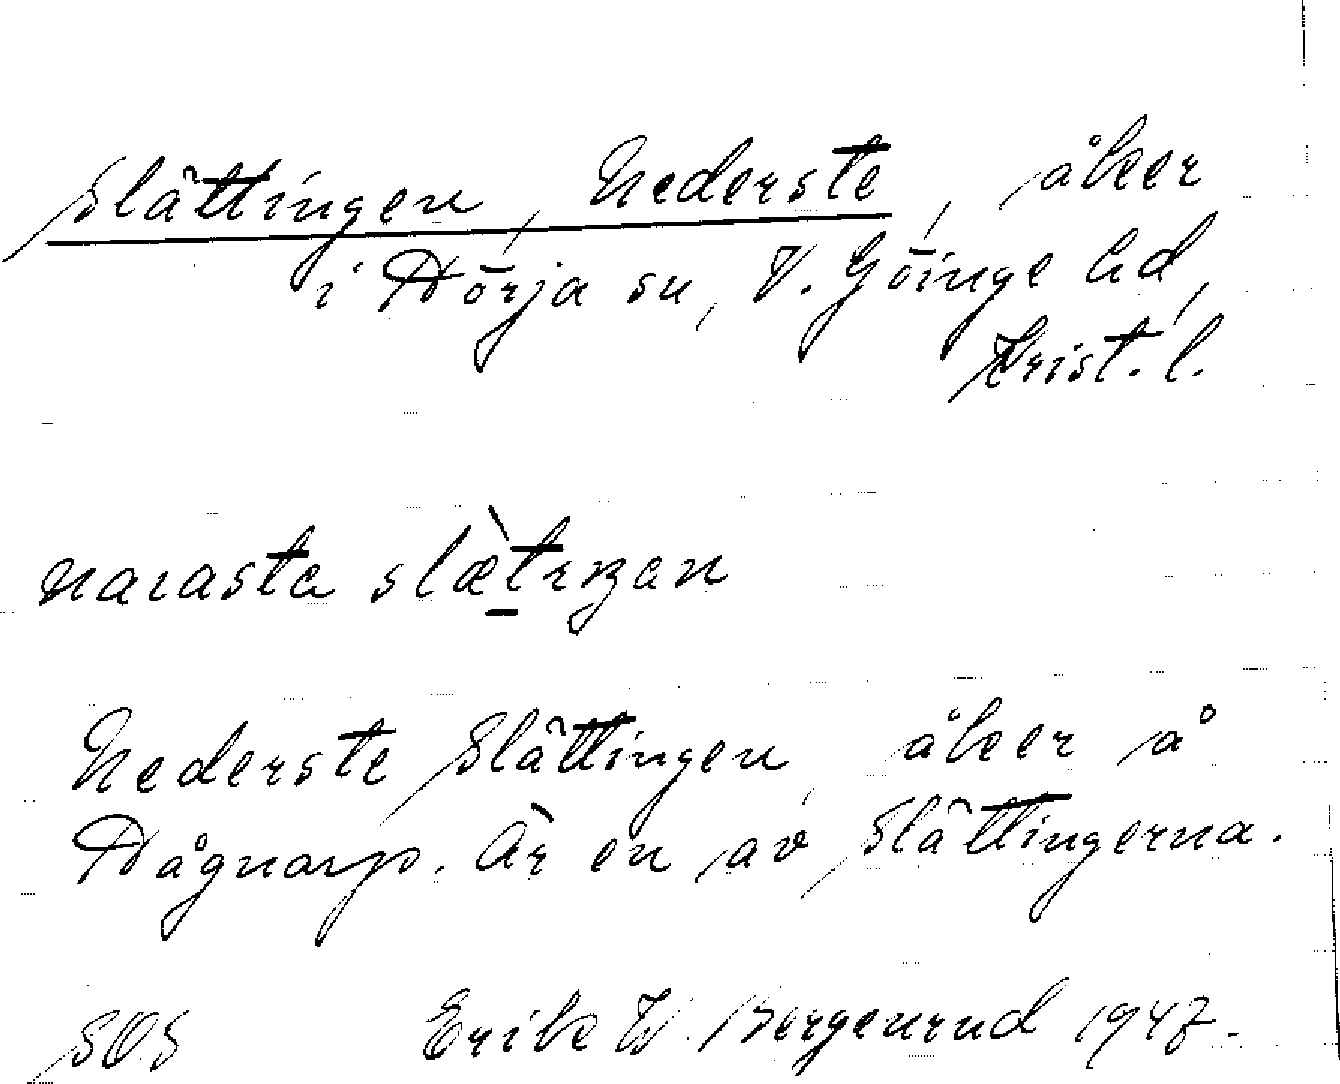 Slättingen, Nederste, åker
i Hörja sn, V. Göinge hd,
Krist. l.
narasta slæ̀tıŋan
Nederste Slättingen, åker å
Hågnarp. Är en av Slättingerna.
SOS Erik W. Bergenrud 1947.